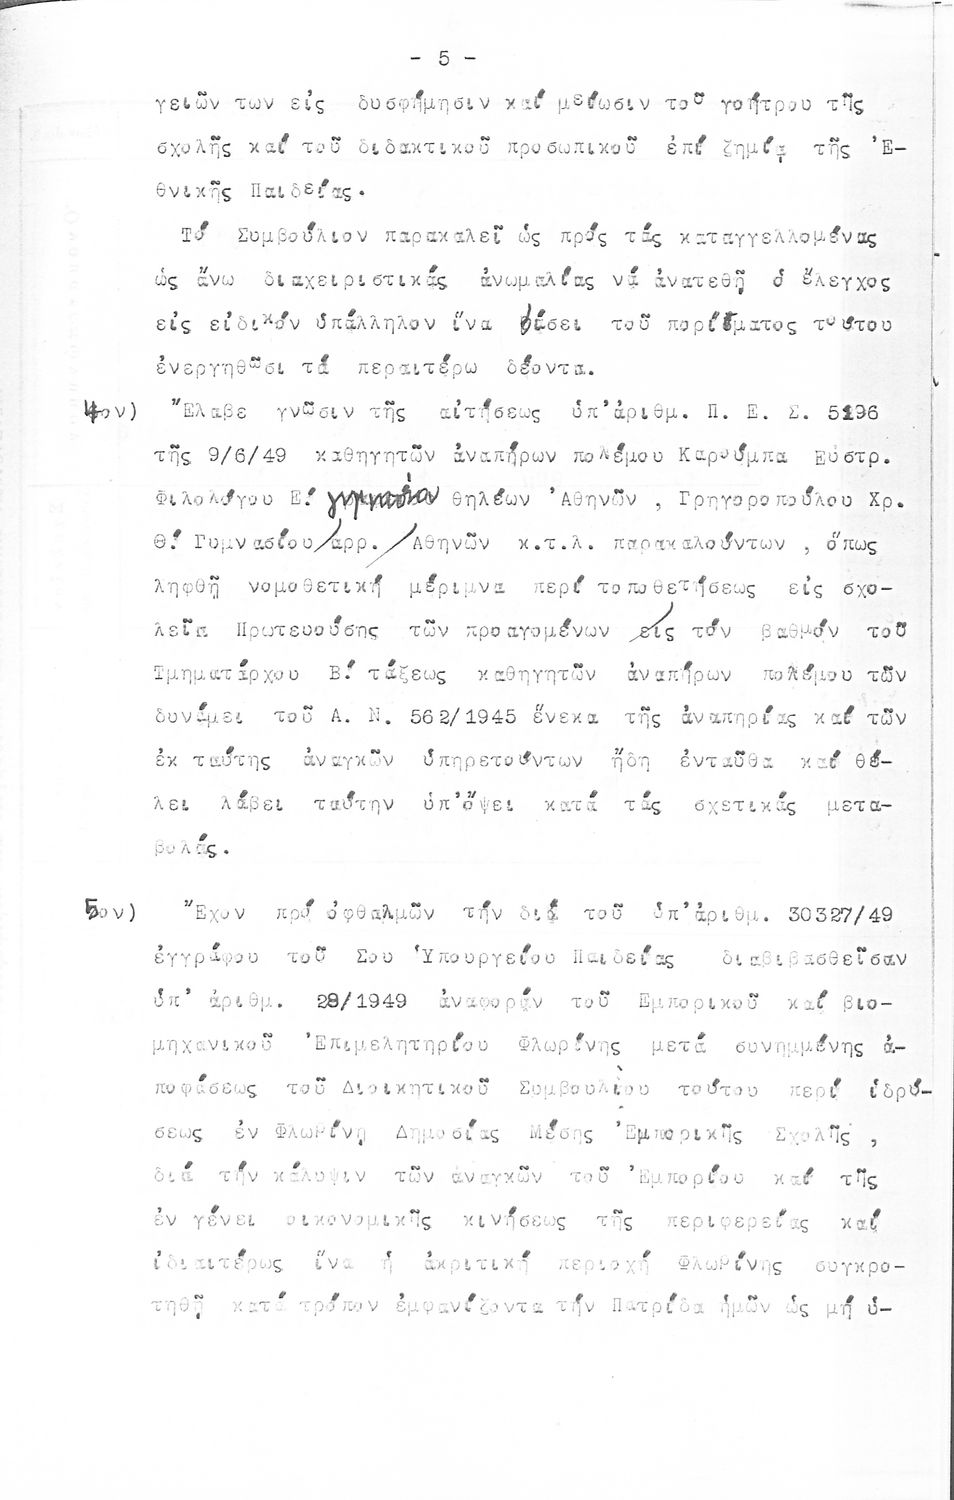 - 5 -
γειῶν των εἰς δυσφήμησιν καί μείωσιν τοῦ γοήτρου τῆς
σχολῆς καί τοῦ διδακτικοῦ προσωπικοῦ ἐπί ζημίᾳ τῆς Ἐ-
θνικῆς Παιδείας.
Τό Συμβούλιον παρακαλεῖ ὡς πρός τάς καταγγελλομένας
ὡς ἄνω διαχειριστικάς ἀνωμαλίας νά ἀνατεθῇ ὁ ἔλεγχος
εἰς εἰδικόν ὑπάλληλον ἵνα βάσει τοῦ πορίσματος τούτου
ἐνεργηθῶσι τά περαιτέρω δέοντα.
4ον) Ἔλαβε γνῶσιν τῆς αἰτήσεως ὑπ' ἀριθμ. Π. Ε. Σ. 5196
τῆς 9/6/49 καθηγητῶν ἀναπήρων πολέμου Καρούμπα Εὐστρ.
Φιλολόγου Ε! γυμνασίου θηλέων Ἀθηνῶν , Γρηγοροπούλου Χρ.
Θ! Γυμνασίου/ἀρρ./Ἀθηνῶν κ.τ.λ. παρακαλούντων , ὅπως
ληφθῇ νομοθετική μέριμνα περί τοποθετήσεως εἰς σχο-
λεῖα Πρωτευούσης τῶν προαγομένων εἰς τόν βαθμόν τοῦ
Τμηματάρχου Β! τάξεως καθηγητῶν ἀναπήρων πολέμου τῶν
δυνάμει τοῦ Α. Ν. 562/1945 ἕνεκα τῆς ἀναπηρίας καί τῶν
ἐκ ταύτης ἀναγκῶν ὑπηρετούντων ἤδη ἐνταῦθα καί θέ-
λει λάβει ταύτην ὑπ' ὄψει κατά τάς σχετικάς μετα-
βολάς.
5ον) Ἔχον πρό ὀφθαλμῶν τήν διά τοῦ ὑπ' ἀριθμ. 30327/49
ἐγγράφου τοῦ Σου Ὑπουργείου Παιδείας διαβιβασθεῖσαν
ὑπ' ἀριθμ. 28/1949 ἀναφοράν τοῦ Ἐμπορικοῦ καί βιο-
μηχανικοῦ Ἐπιμελητηρίου Φλωρίνης μετά συνημμένης ἀ-
ποφάσεως τοῦ Διοικητικοῦ Συμβουλίου τούτου περί ἱδρύ-
σεως ἐν Φλωρίνῃ Δημοσίας Μέσης Ἐμπορικῆς Σχολῆς ,
διά τήν κάλυψιν τῶν ἀναγκῶν τοῦ Ἐμπορίου καί τῆς
ἐν γένει οἰκονομικῆς κινήσεως τῆς περιφερείας καί
ἰδιαιτέρως ἵνα ἡ ἀκριτική περιοχή Φλωρίνης συγκρο-
τηθῇ κατά τρόπον ἐμφανίζοντα τήν Πατρίδα ἡμῶν ὡς μή ὑ-